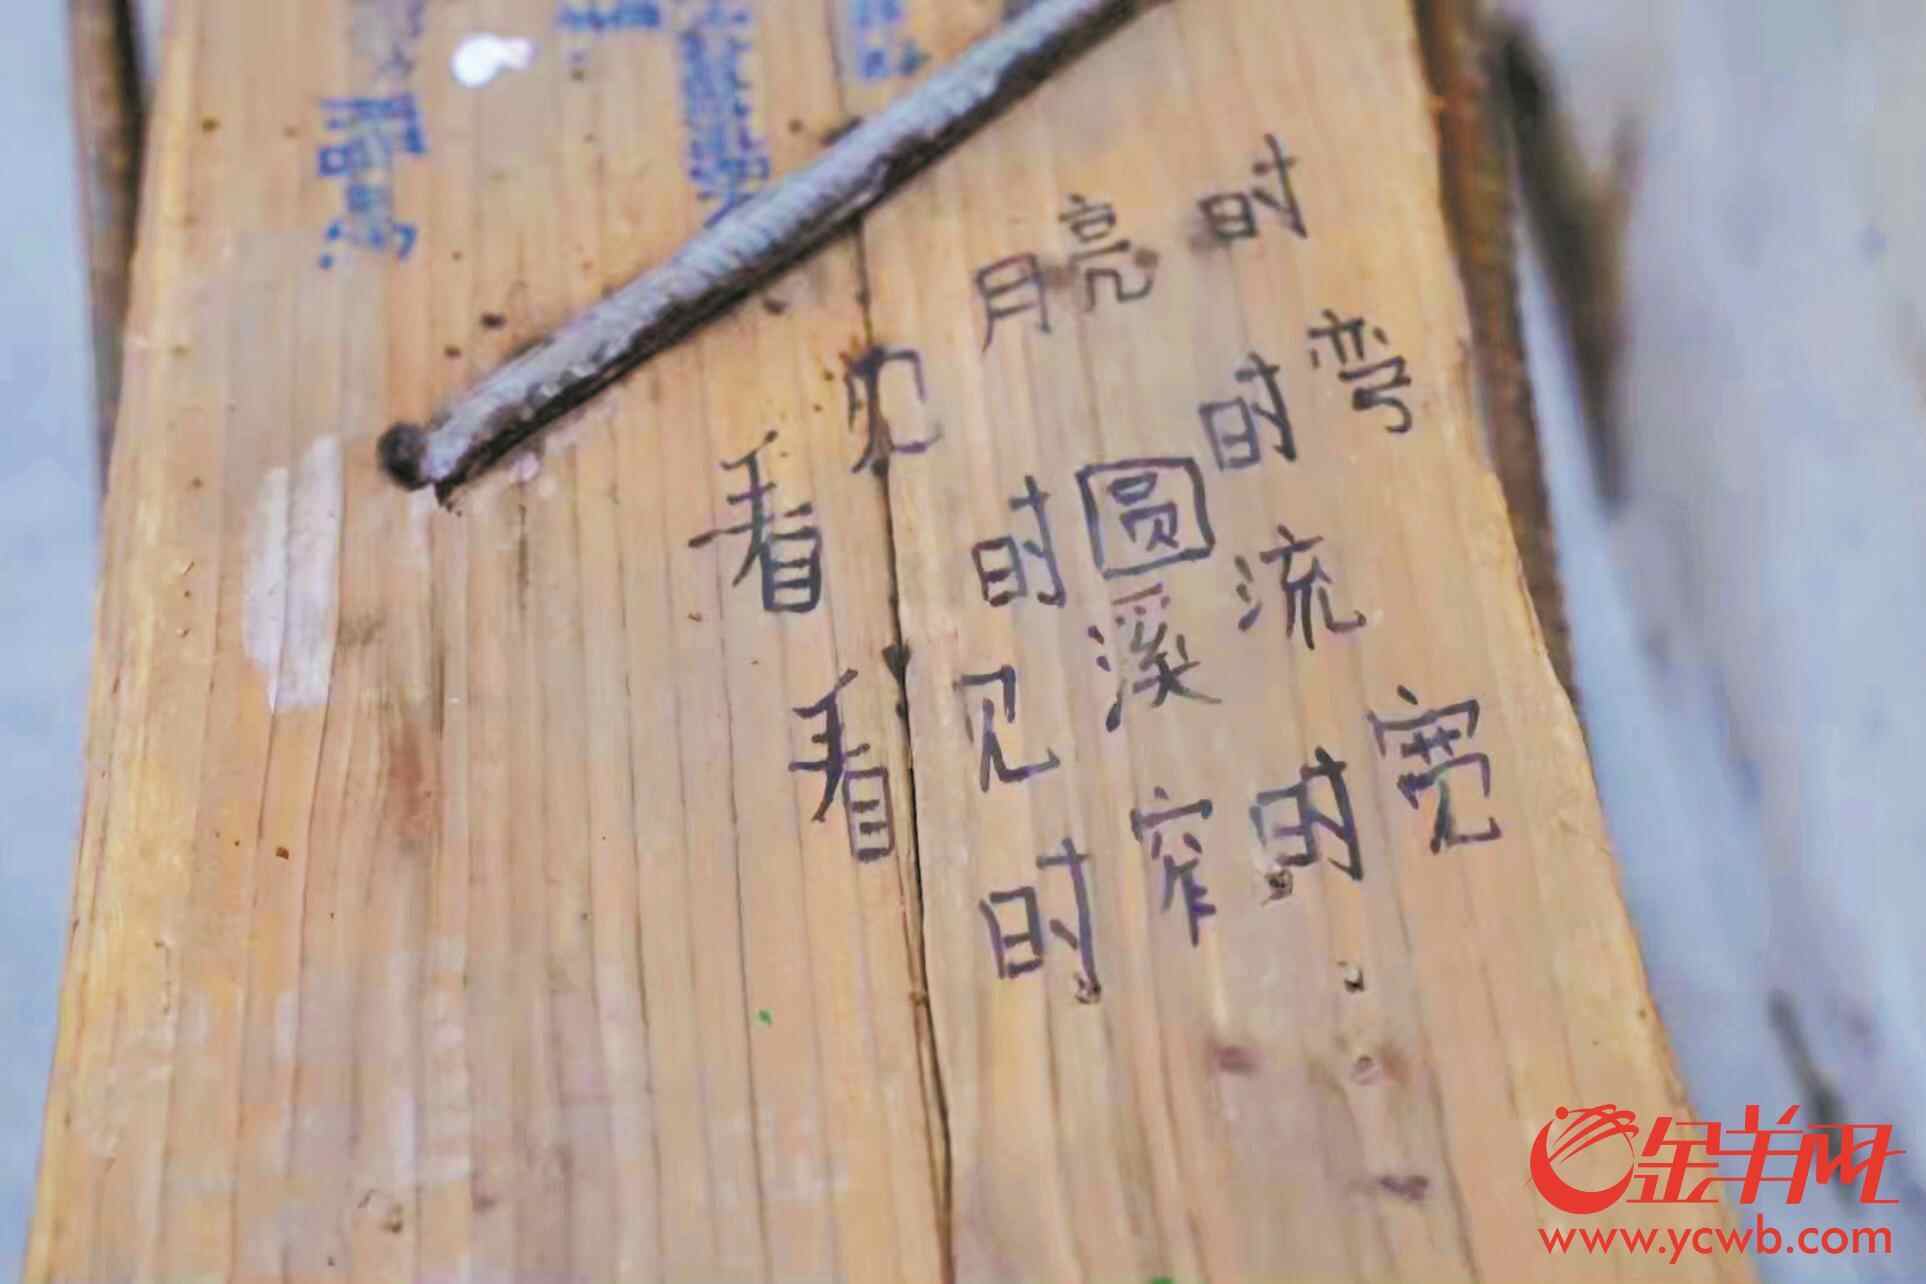 看见月亮时
时圆时弯
看见溪流
时窄时宽
金羊网
www.ycwb.com